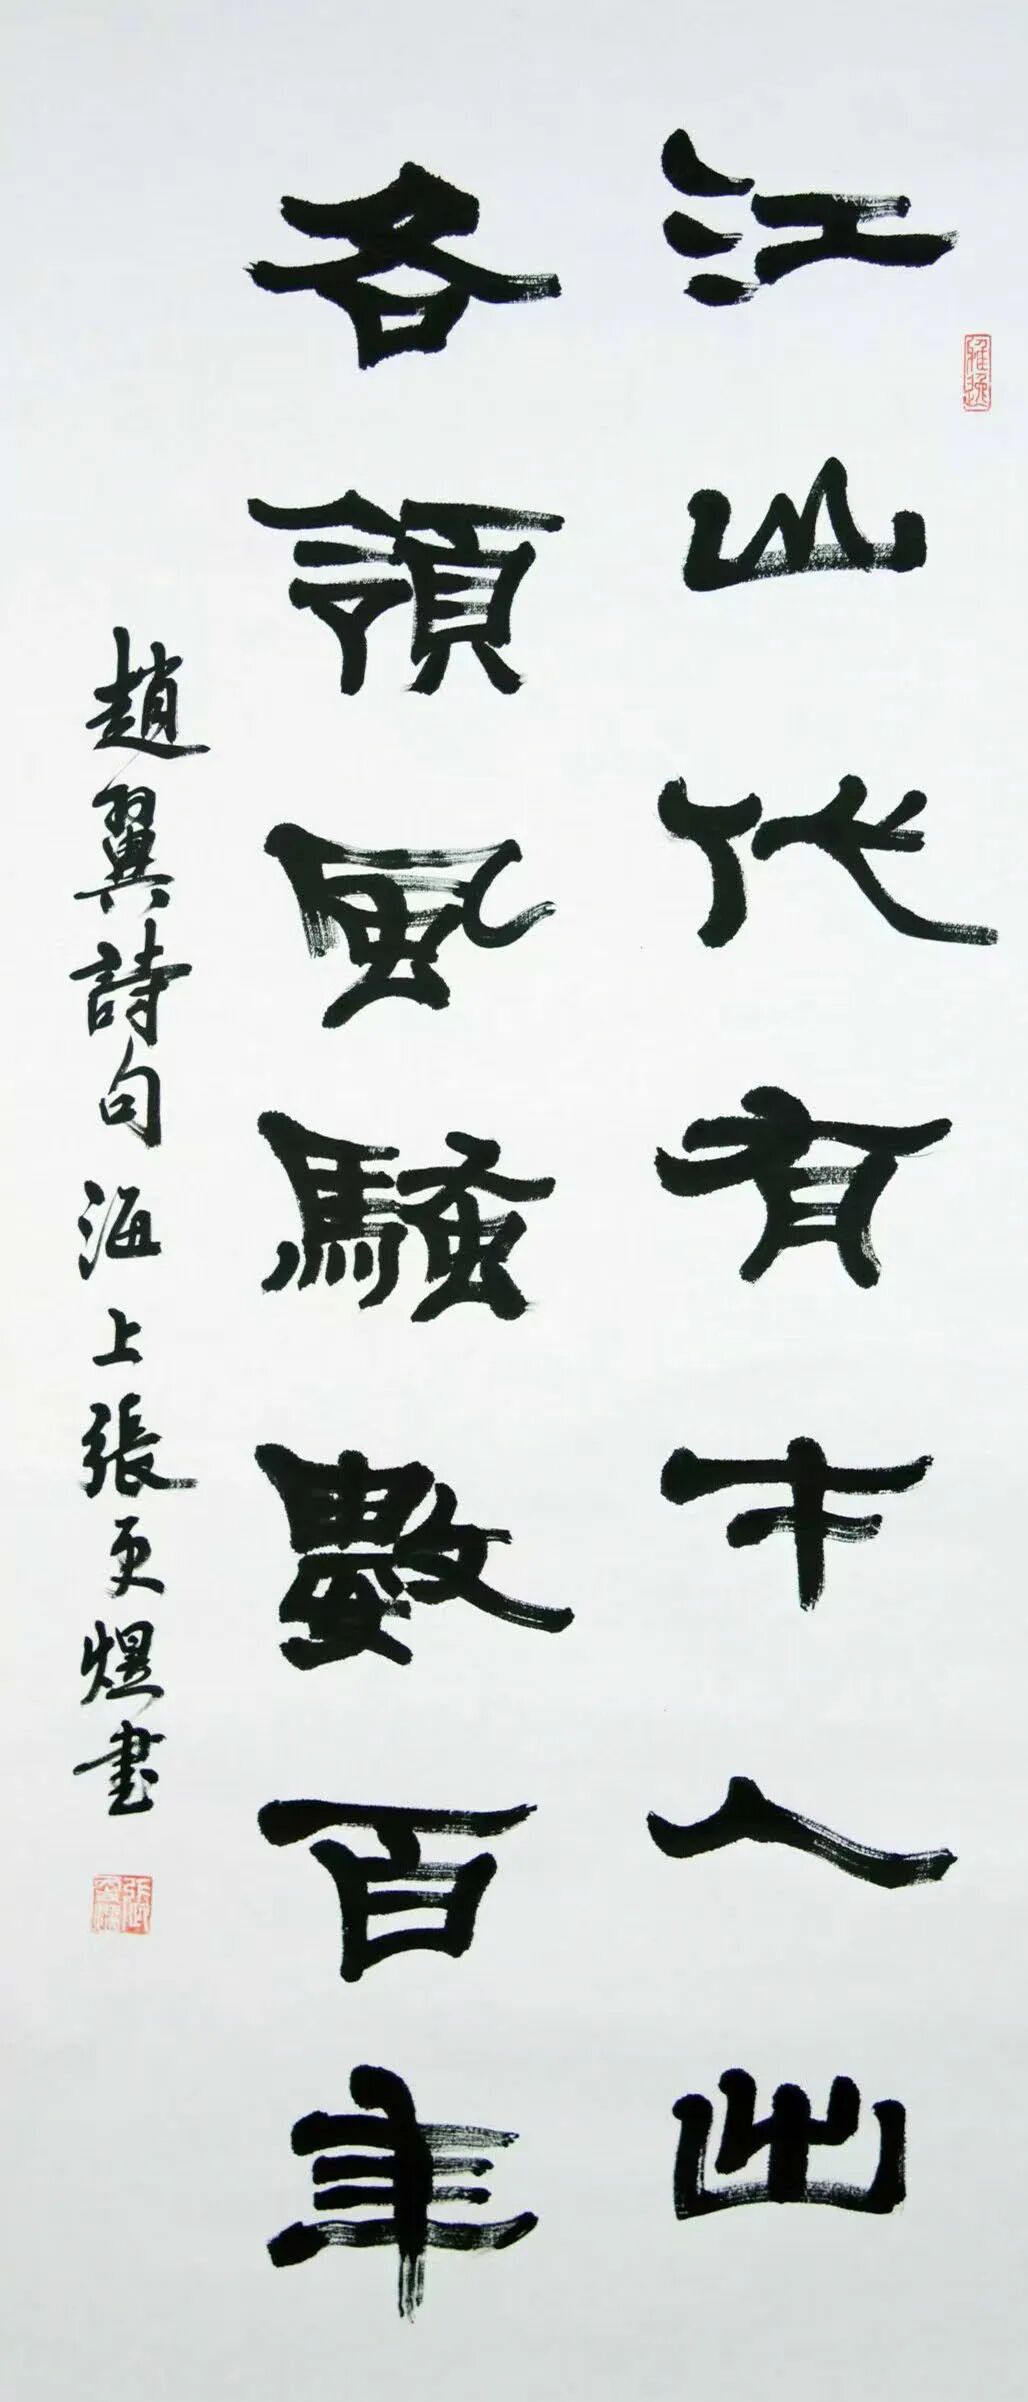 江山代有才人出
各領風騷數百年
趙翼詩句 海上張更煜書
雅逸